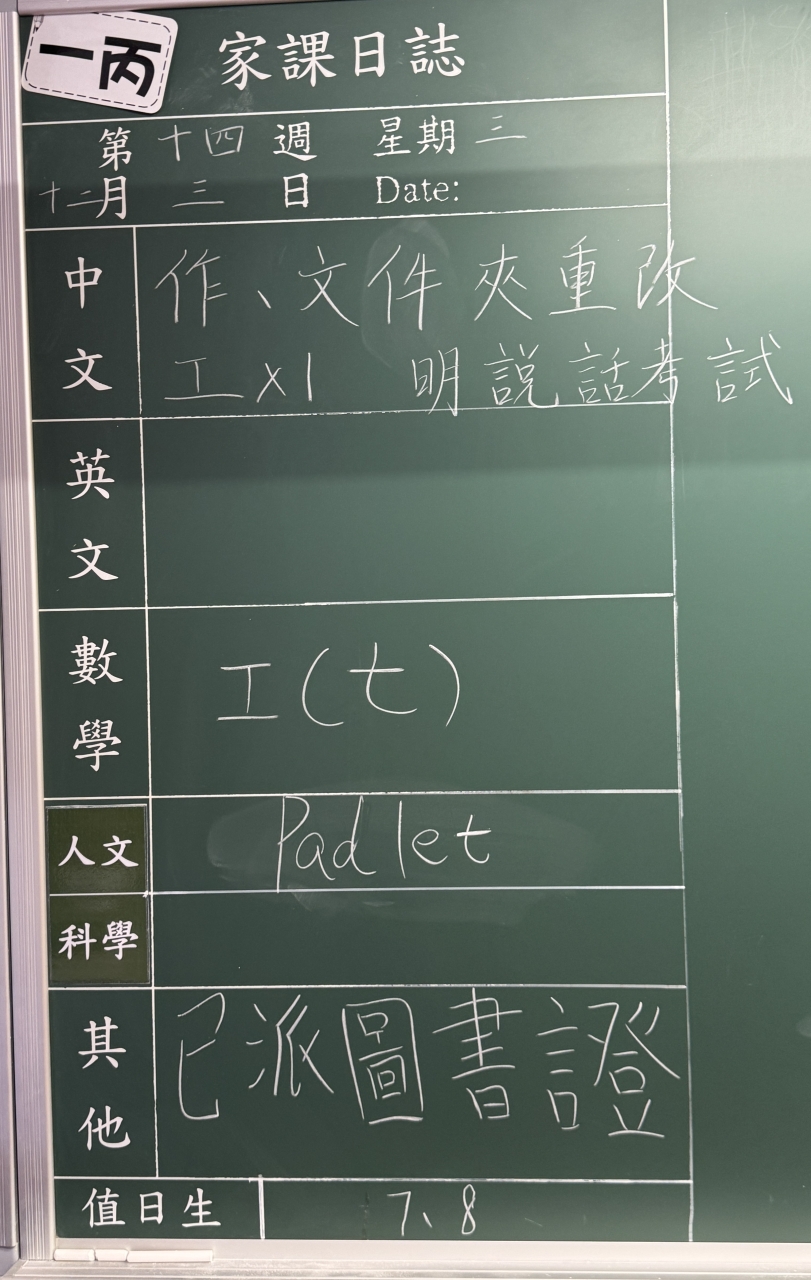 一丙
家課日誌
第十四週 星期三
十二月三日 Date:
中文
作、文件夾重改
工x1 明說話考試
英文
數學
工(七)
人文
Padlet
科學
其他
已派圖書證
值日生
7、8